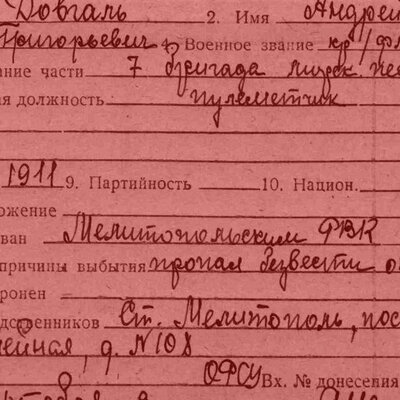 Довгаль 2. Имя Андрей
Григорьевич 4. Военное звание кр/фл
ание части 7 бригада морск. пех
ая должность пулеметчик
1911 9. Партийность 10. Национ.
ложение
ван Мелитопольским РВК
причины выбытия пропал безвести
ронен
дственников Ст. Мелитополь, пос
ейная, д. N 108
ОФСУ Вх. № донесения